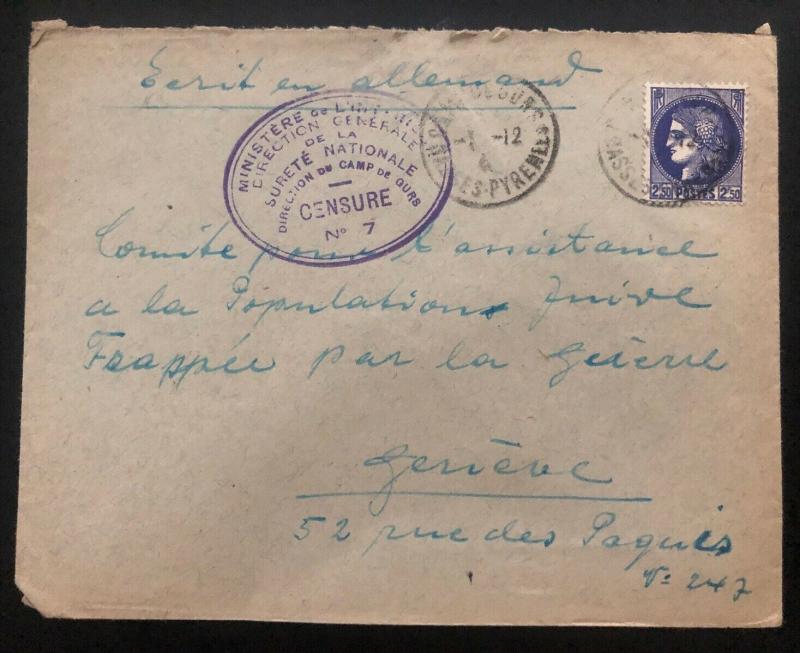 Ecrit en allemand
MINISTÈRE de L'INT
DIRECTION GÉNÉRALE
DE LA
SURETÉ NATIONALE
DIRECTION DU CAMP DE GURS
CENSURE
N° 7
GURS
-1 -12
4
SES-PYRENEES
BASSES
2,50 POSTES 2,50
Comite pour l'assistance
a la Populations Juive
Frappée par la Guerre
Genève
52 rue des Paquis
N: 247